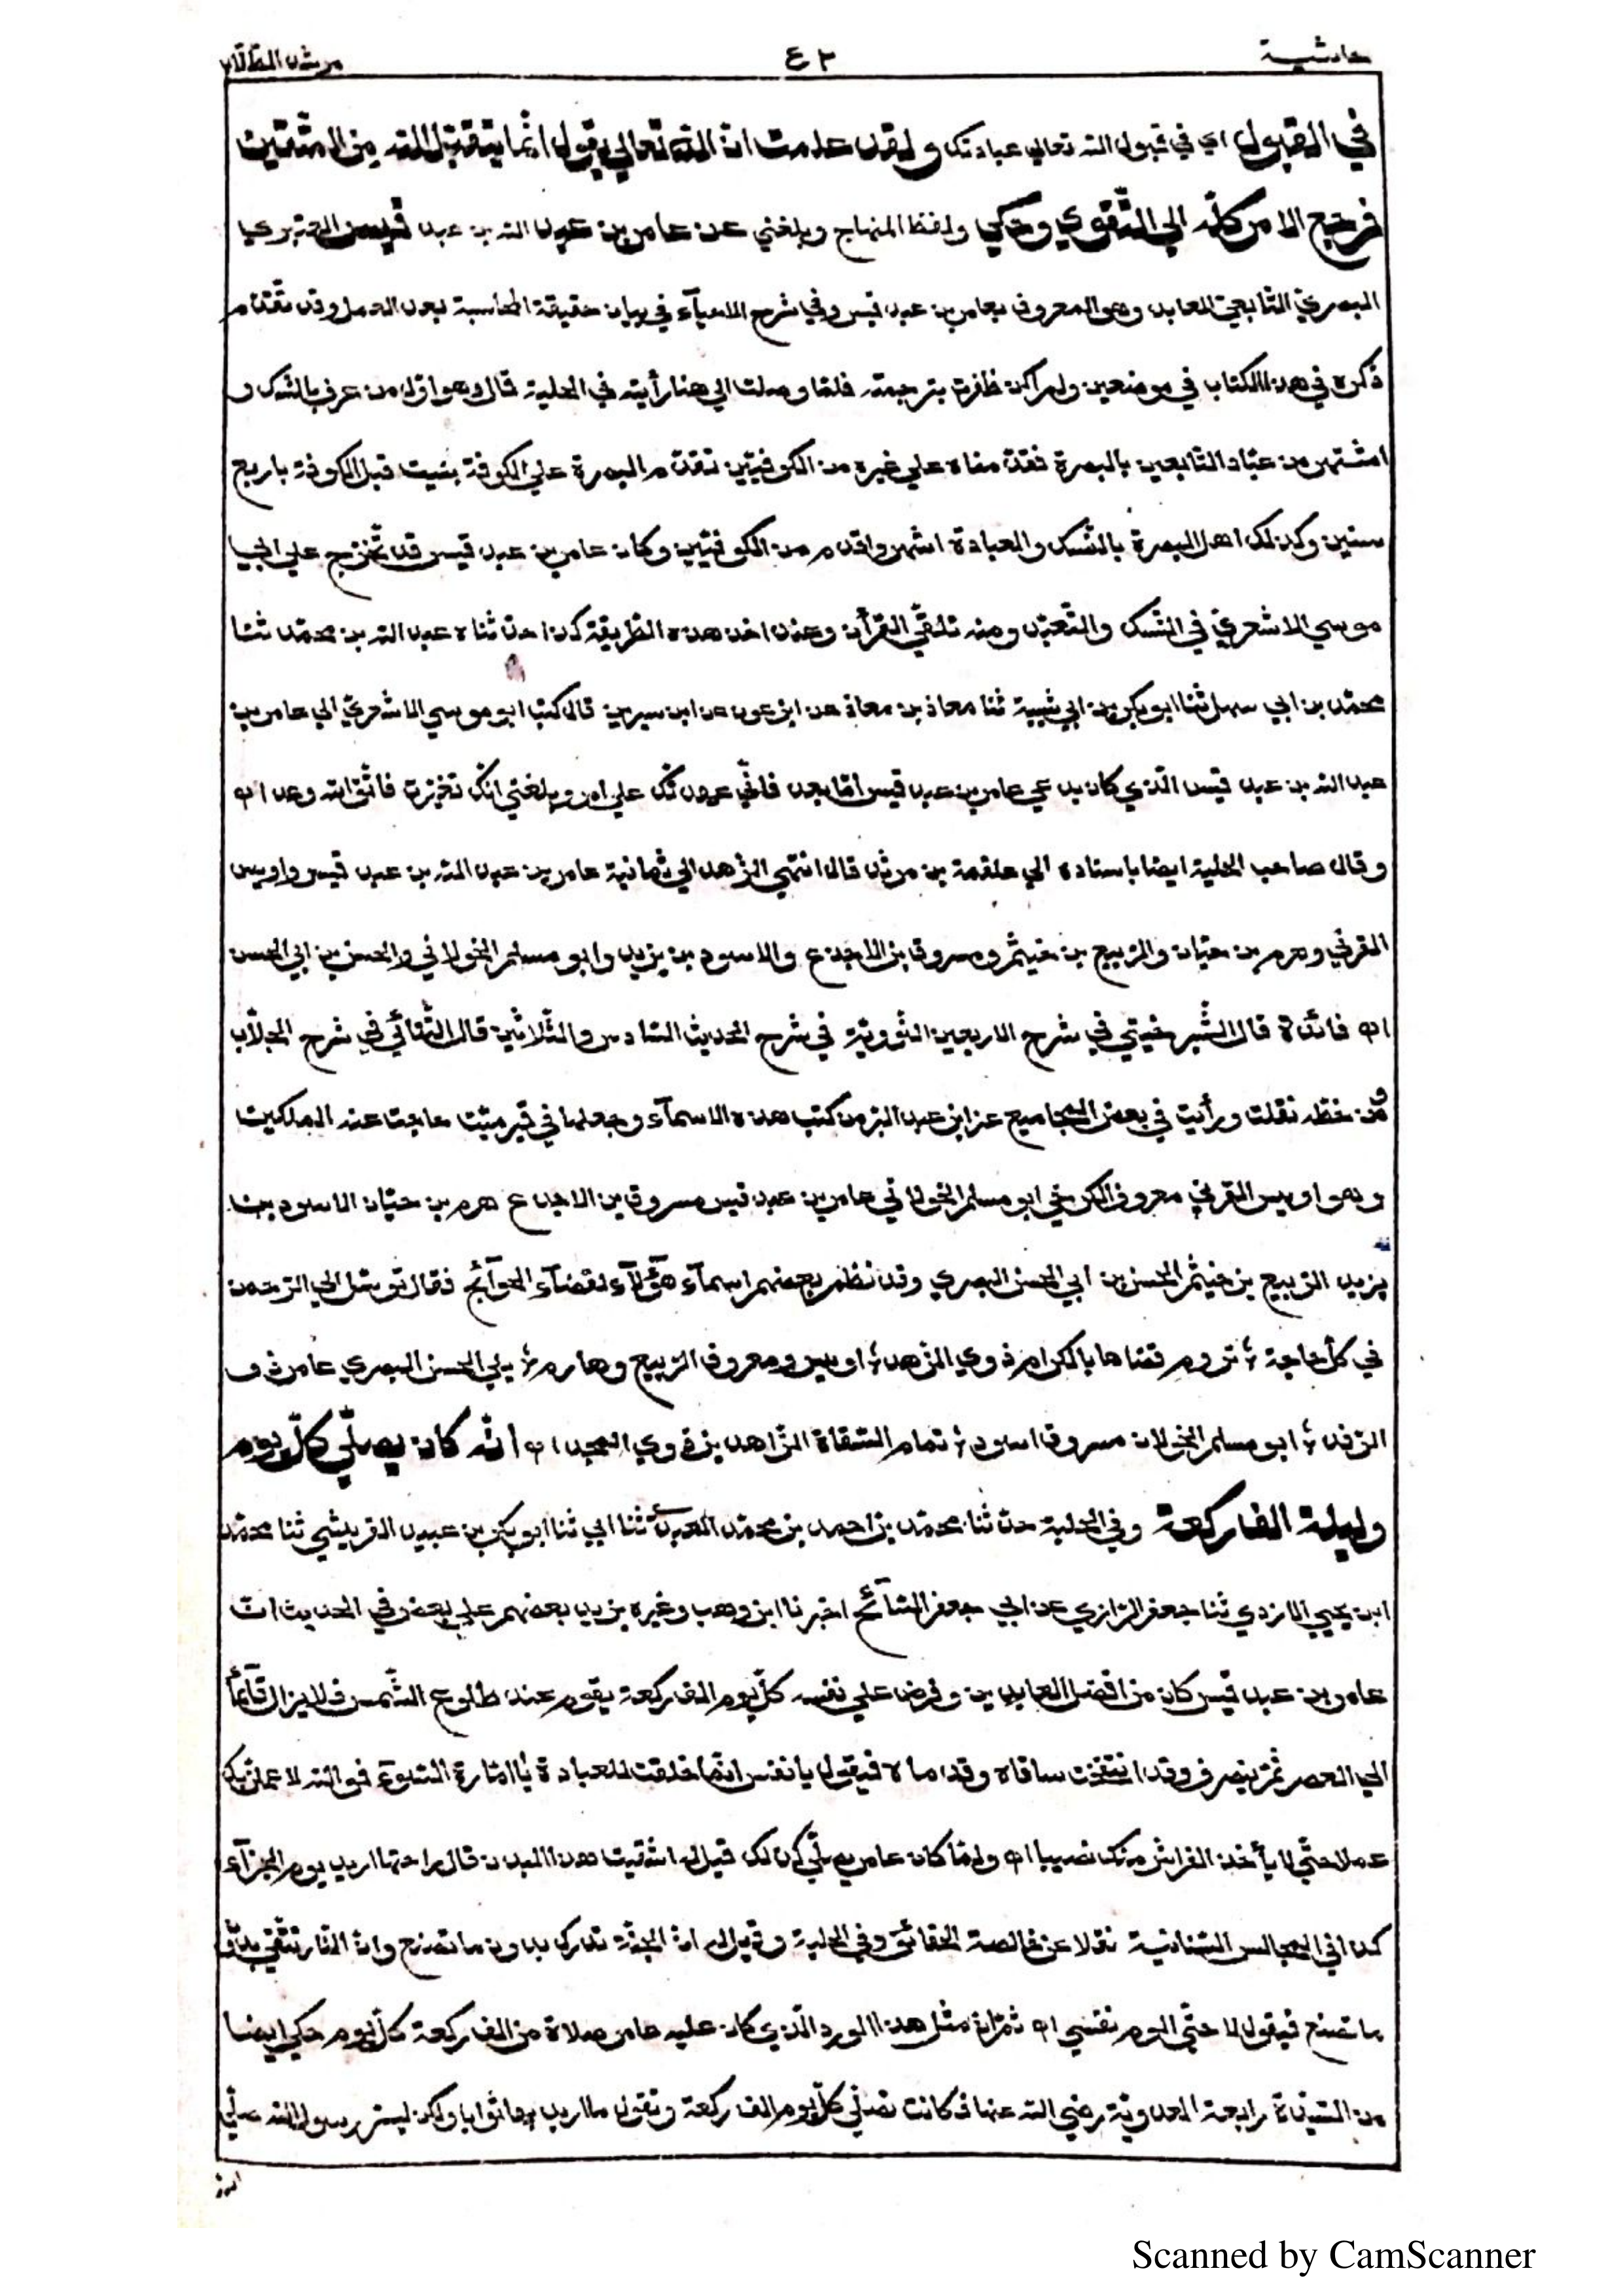 حاشية ٤٢ مرشد الطلاب
في القبول اي في قبول الله تعالي عبادتك ولقد علمت ان الله تعالي يقول انما يتقبل الله من المتقين
فرجع الامر كله الي التقوي وحكي ولفظ المنهاج وبلغني عن عامر بن عبد الله بن عبد قيس العنبري
البصري التابعي العابد وهو المعروف بعامر بن عبد قيس وفي شرح الاحيآء في بيان حقيقة المحاسبة بعد العمل وقد تقدم
ذكره في هذا الكتاب في موضعين ولم اكن ظفرت بترجمته فلما وصلت الي هنا رأيته في الحلية قال وهو اول من عرف بالنسك و
اشتهر من عباد التابعين بالبصرة فقدمناه علي غيره من الكوفيين لتقدم البصرة علي الكوفة بنيت قبل الكوفة باربع
سنين وكذلك اهل البصرة بالنسك والعبادة اشهر واقدم من الكوفيين وكان عامر بن عبد قيس قد تخرج علي ابي
موسي الاشعري في النسك والتعبد ومنه تلقي القرأن وعنه اخذ هذه الطريقة كذا حدثناه عبد الله بن محمد ثنا
محمد بن ابي سهل ثنا ابو بكر بن ابي شيبة ثنا معاذ بن معاذ عن ابن عون عن ابن سيرين قال كتب ابو موسي الاشعري الي عامر بن
عبد الله بن عبد قيس الذي كان يدعي عامر بن عبد قيس اما بعد فاني عهدتك علي امر وبلغني انك تغيرت فاتق الله وعد اه
وقال صاحب الحلية ايضا باسناده الي علقمة بن مرثد قال انتهي الزهد الي ثمانية عامر بن عبد الله بن عبد قيس واويس
القرني وهرم بن حيان والربيع بن خيثم ومسروق بن الاجدع والاسود بن يزيد وابو مسلم الخولاني والحسن بن ابي الحسن
اه فائدة قال الشبرخيتي في شرح الاربعين النووية في شرح الحديث السادس والثلاثين قال التتائي في شرح الجلاب
ومن خطه نقلت ورأيت في بعض المجاميع عن ابن عبد البر من كتب هذه الاسمآء وجعلها في قبر ميت حاجت عنه الملكين
وهو اويس القرني معروف الكرخي ابو مسلم الخولاني عامر بن عبد قيس مسروق بن الاجدع هرم بن حيان الاسود بن
يزيد الربيع بن خيثم الحسن بن ابي الحسن البصري وقد نظم بعضهم اسمآء هؤلآء لقضآء الحوآئج فقال توسل الي الرحمن
في كل حاجة ؛ تروم قضاها بالكرام ذوي الزهد ؛ اويس ومعروف الربيع وهارم ؛ يلي الحسن البصري عامر ذو
الرفد ؛ ابو مسلم الخولان مسروق اسود ؛ تمام الثقاة الزاهدين ذوي المجد اه انه كان يصلي كل يوم
وليلة الف ركعة وفي الحلية حدثنا محمد بن احمد بن محمد العبدي ثنا ابي ثنا ابو بكر بن عبيد القريشي ثنا محمد
ابن يحيي الازدي ثنا جعفر الرازي عن ابي جعفر السآئح اخبرنا ابن وهب وغيره يزيد بعضهم علي بعض وفي الحديث ان
عامر بن عبد قيس كان من افضل العابدين وفرض علي نفسه كل يوم الف ركعة يقوم عند طلوع الشمس فلا يزال قآئما
الي العصر ثم ينصرف وقد انتفخت ساقاه وقدماه فيقول يا نفس انما خلقت للعبادة يا امارة السوء فوالله لاعملن بك
عملا حتي لا يأخذ الفراش منك نصيبا اه ولما كان عامر يصلي كذلك قيل له اشقيت هذا البدن قال راحتها اريد يوم الجزآء
كذا في المجالس السنانية نقلا عن خالصة الحقائق وفي الحلية وقيل له ان الجنة تدرك بدون ما تصنع وان النار تتقي بدون
ما تصنع فيقول لا حتي الوم نفسي اه ثم ان مثل هذا الورد الذي كان عليه عامر صلاة من الف ركعة كل يوم حكي ايضا
من السيدة رابعة العدوية رضي الله عنها فكانت تصلي كل يوم الف ركعة وتقول ما اريد بها ثوابا ولكن ليسر رسول الله صلي